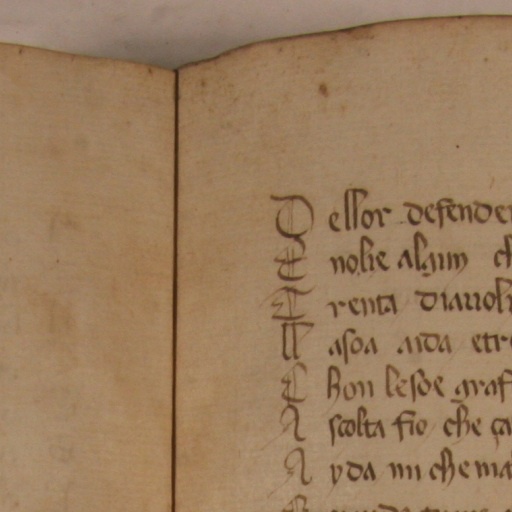 D ellor defender
E nolie alqun ch
T renta diauoli
M asoa aida etr
C hon lesoe graf
A scolta fio che ça
A yda mi che ma